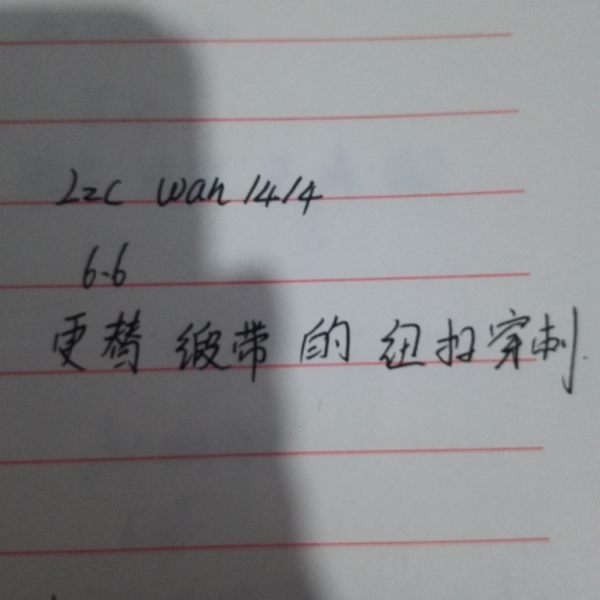 Lzc wan 1414
6.6
更替 缎带 的 纽扣穿刺